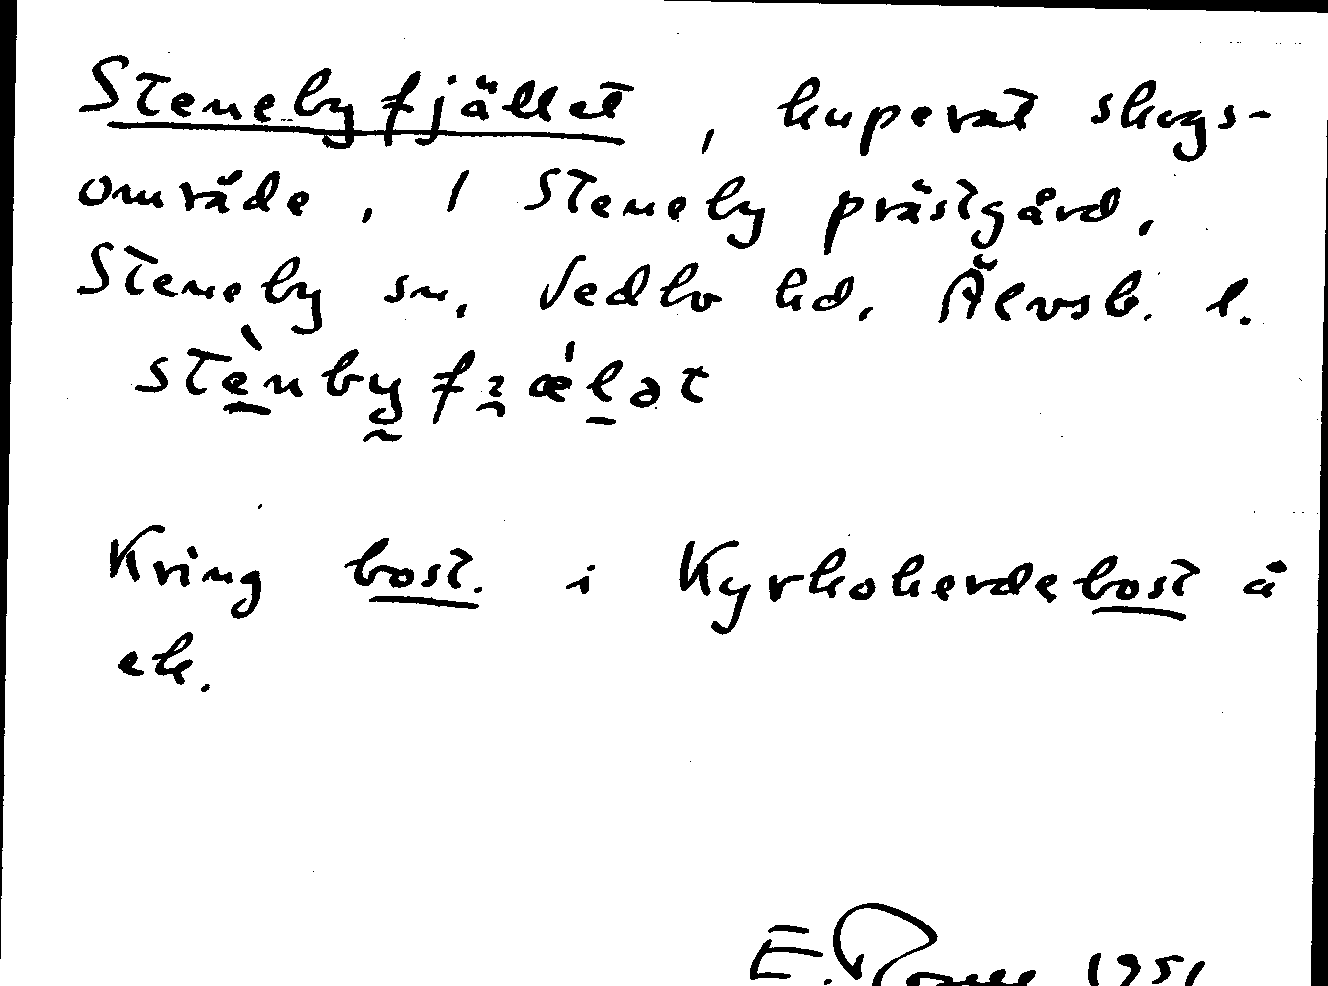 Stenebyfjället, kuperat skogs-
område, 1 Steneby prästgård,
Steneby sn, Vedbo hd, Älvsb. l.
stènbyfɟæ̍lət
Kring bost. i Kyrkoherdebost å
ek.
E. 1951